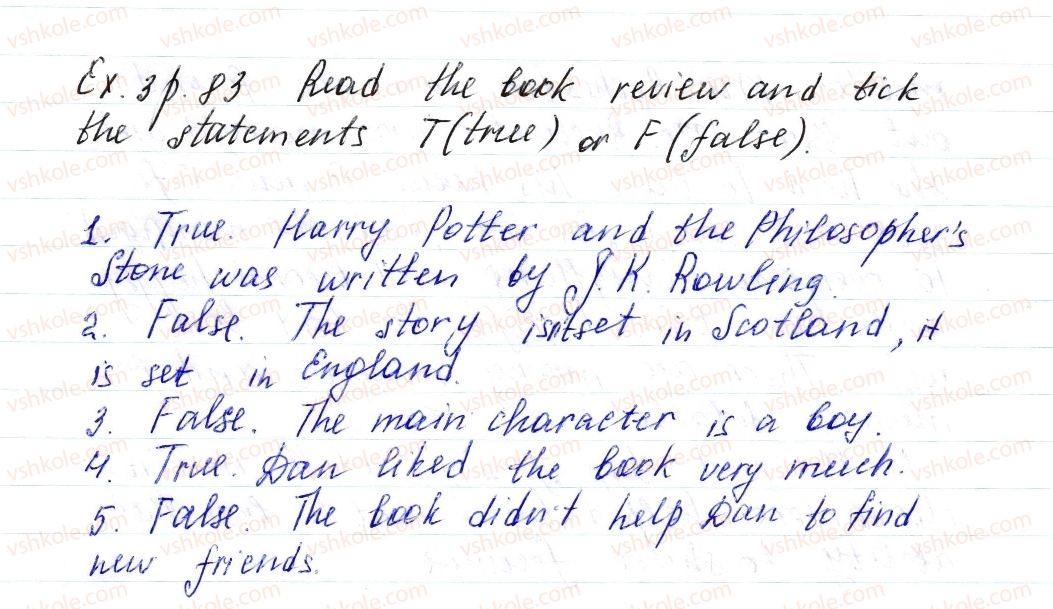 Ex. 3 p. 83 Read the book review and tick
the statements T (true) or F (false).
1. True. Harry Potter and the Philosopher's
Stone was written by J. K. Rowling.
2. False. The story isn't set in Scotland, it
is set in England.
3. False. The main character is a boy.
4. True. Dan liked the book very much.
5. False. The book didn't help Dan to find
new friends.
vshkole.com